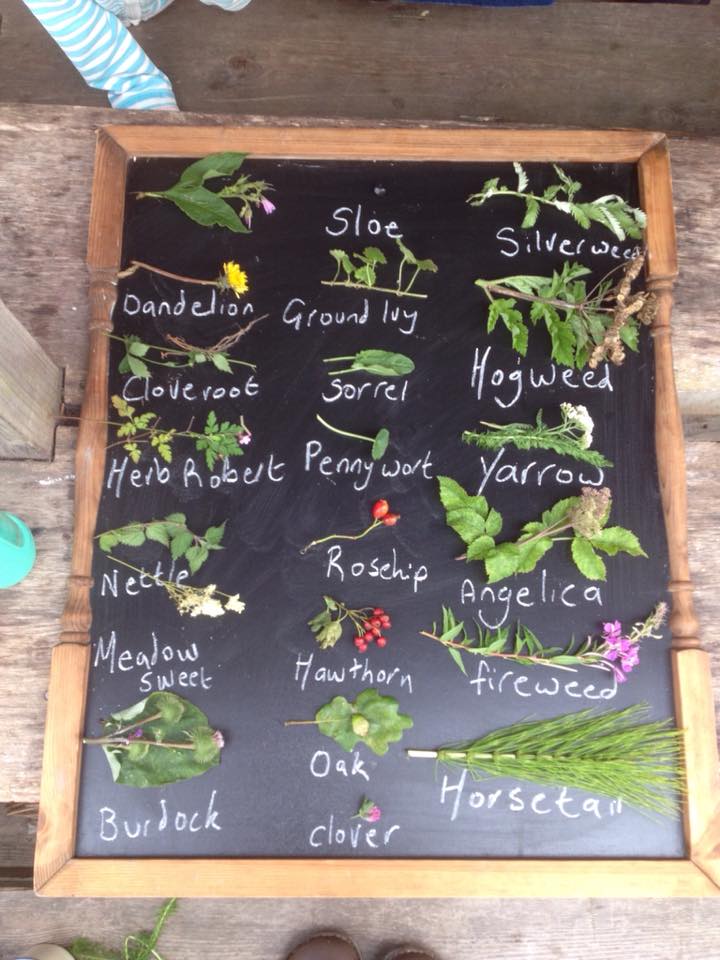 Sloe
Silverweed
Dandelion
Ground Ivy
Cloveroot
Sorrel
Hogweed
Herb Robert
Pennywort
Yarrow
Nettle
Rosehip
Angelica
Meadow
Sweet
Hawthorn
fireweed
Burdock
Oak
Horsetail
clover